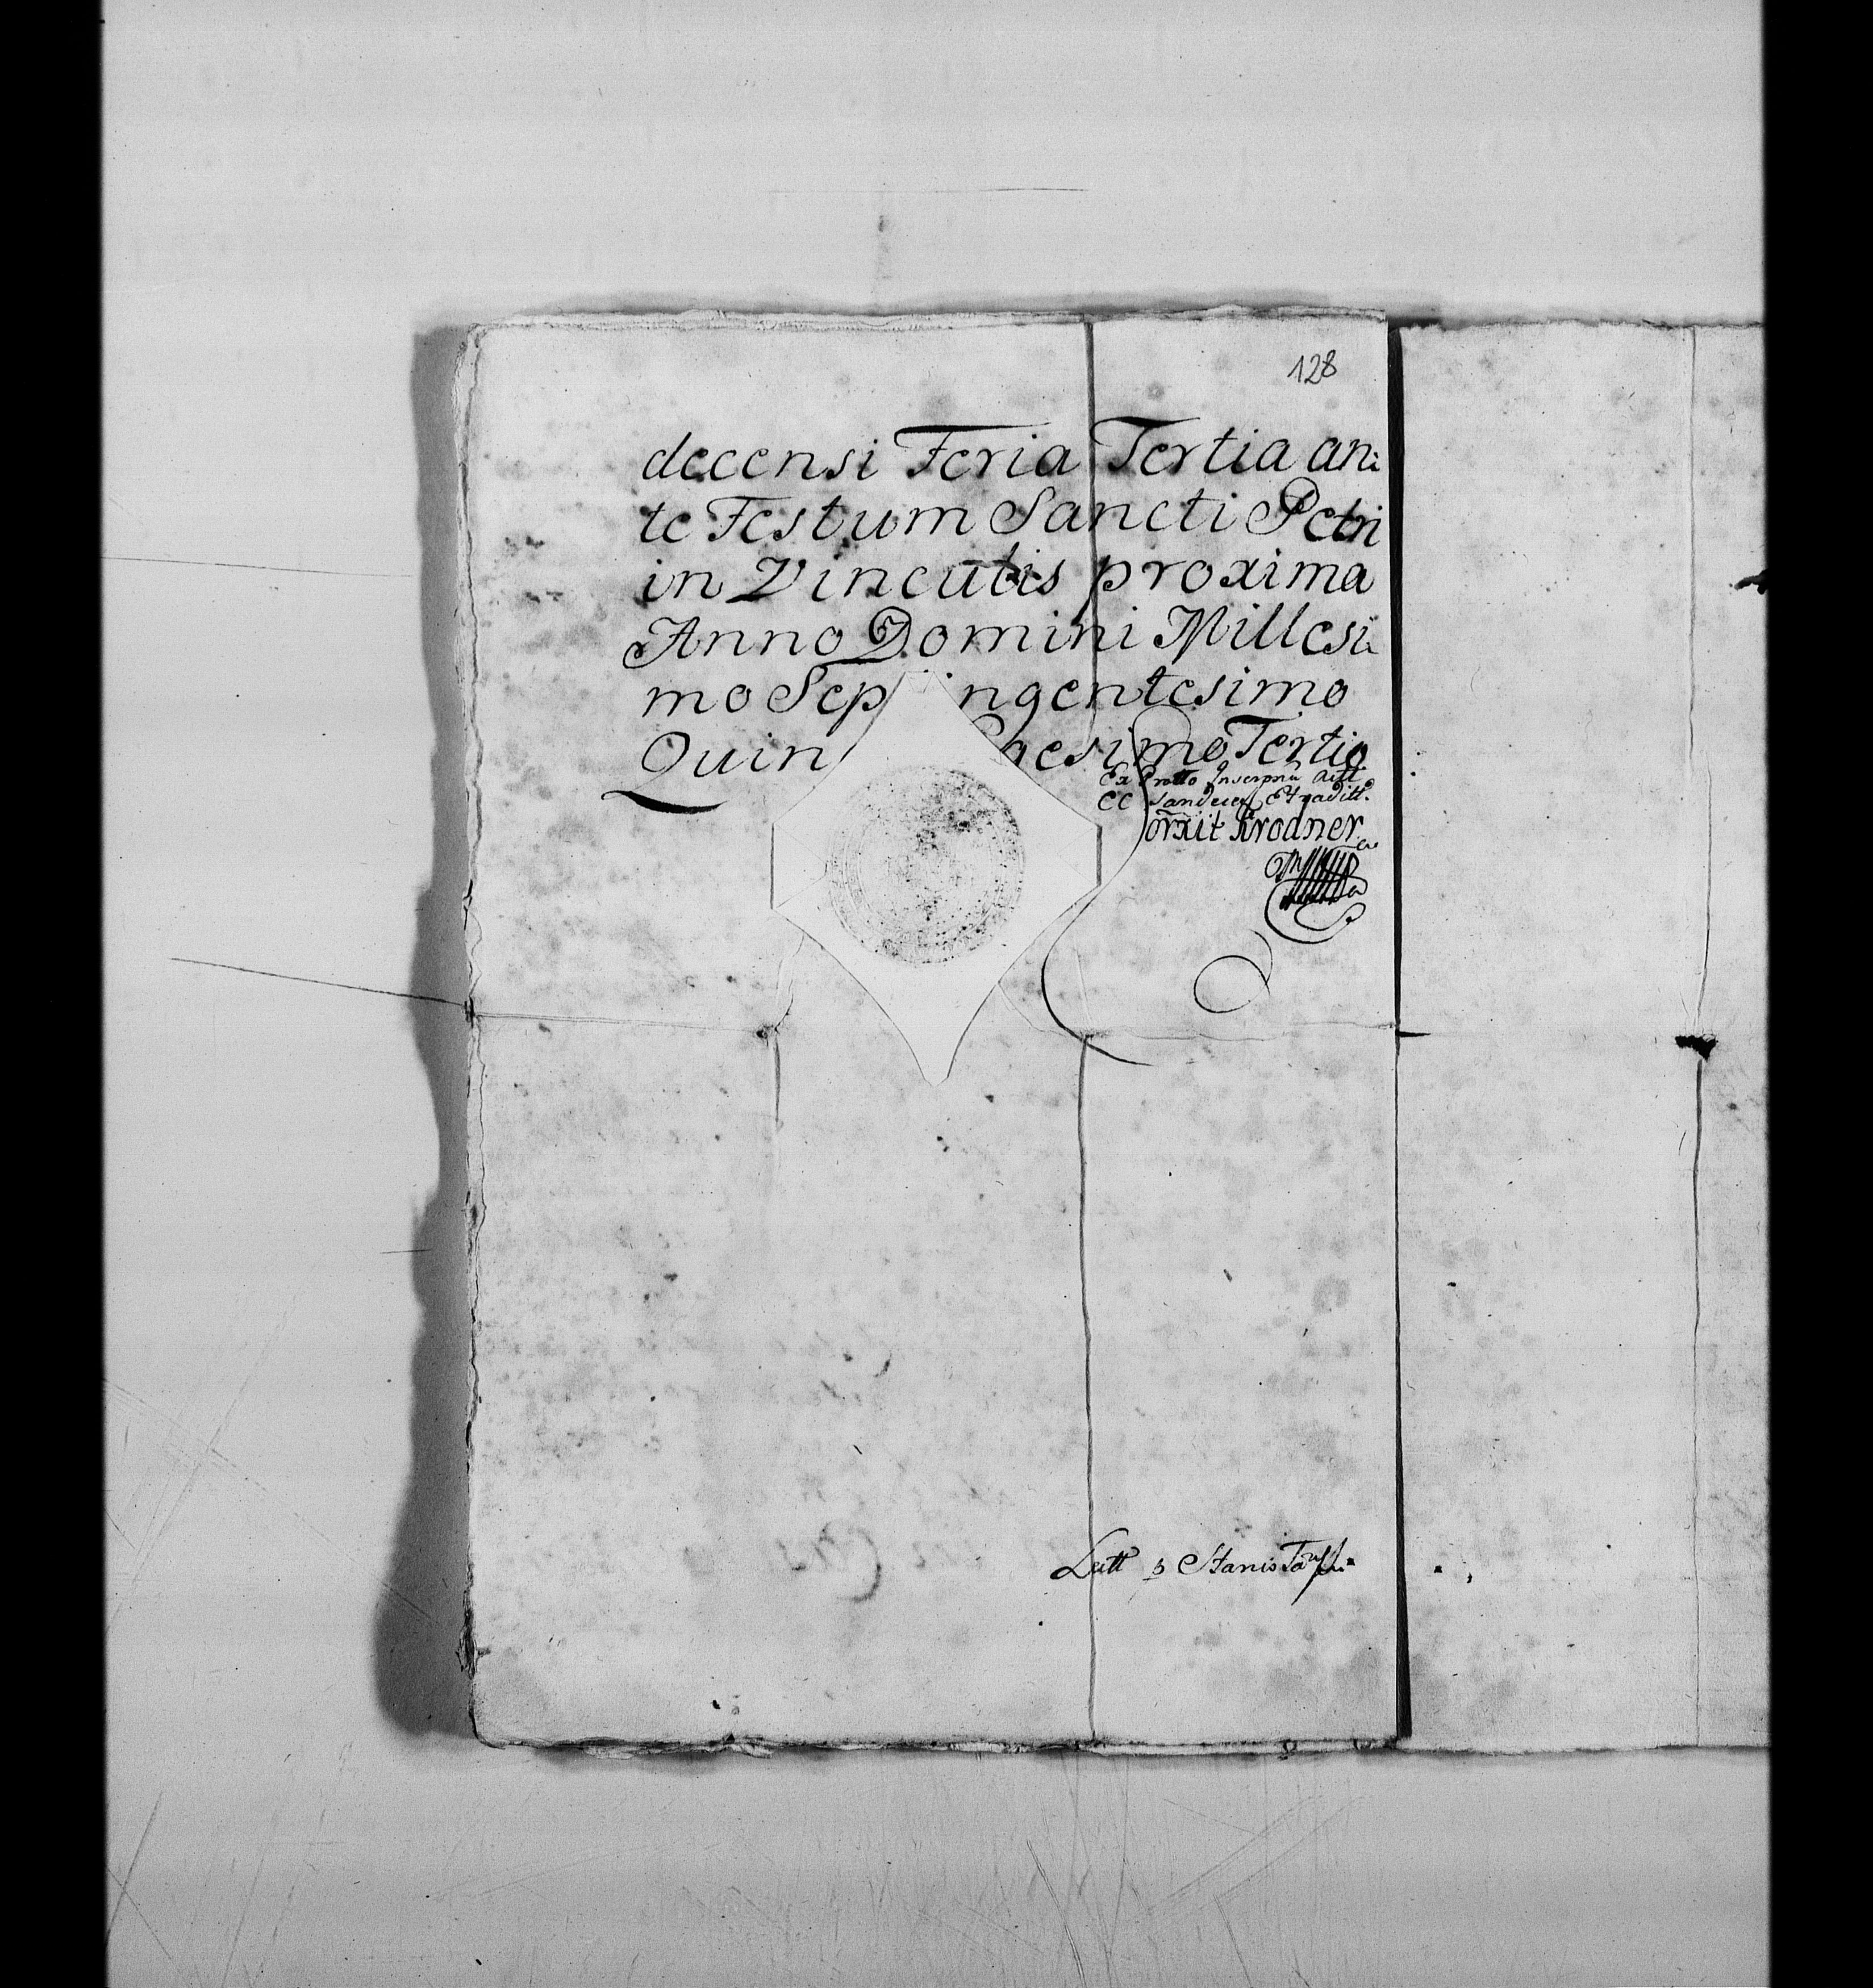 128
decensi Feria Tertia an:
te Festum Sancti Petri
in Vinculis proxima
Anno Domini Millesi:
mo Sep ngentesimo
Quin gesimo Tertio
Ex Protto Inscrpnu
CC Sandecen Extraditt.
Krodner
Lutt Stanis